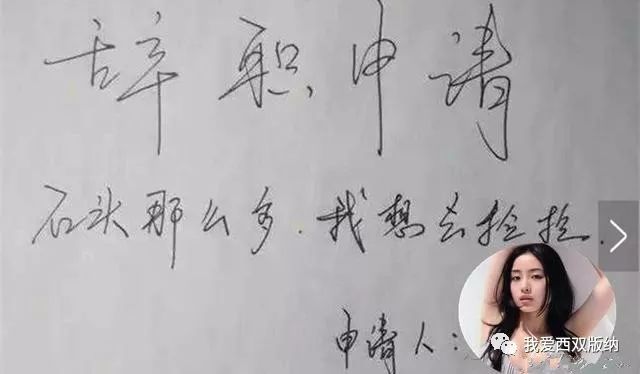 辞职申请
石头那么多.我想去捡捡.
申请人:
我爱西双版纳